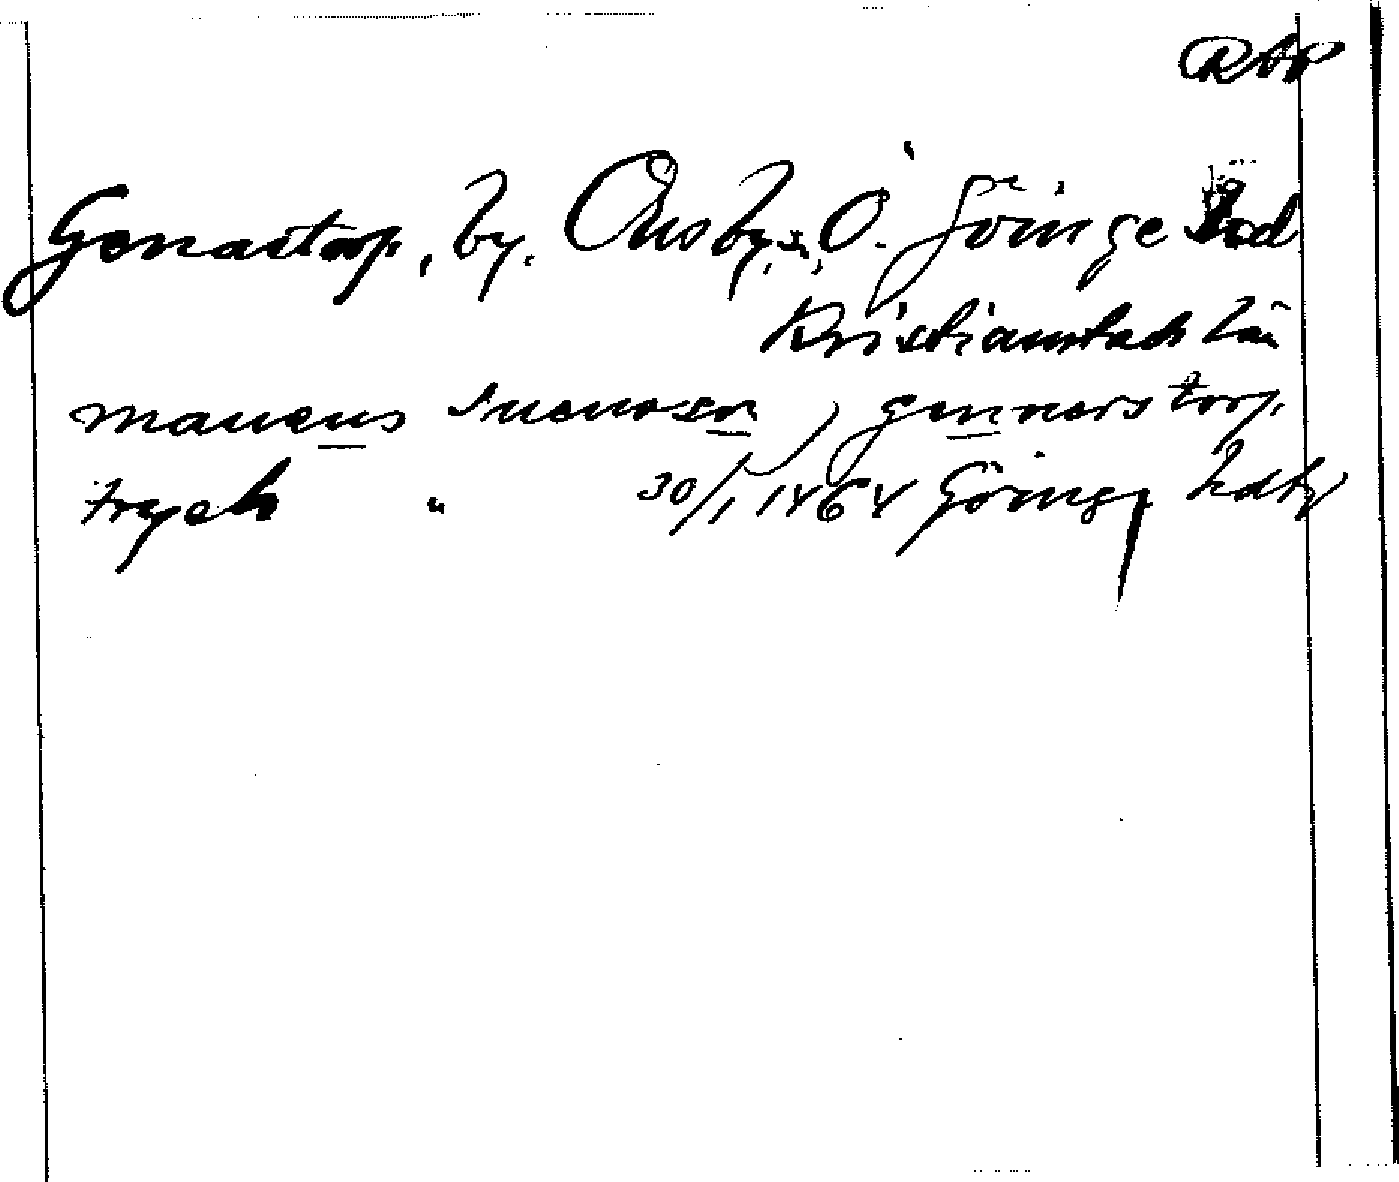 RAP
Genastorp, by. Ousby s:n, Ö. Göinge hd
Kristianstads län
maneus suenosen, gennerstorp
tryck " 30/1 1464 Göinge hdbr